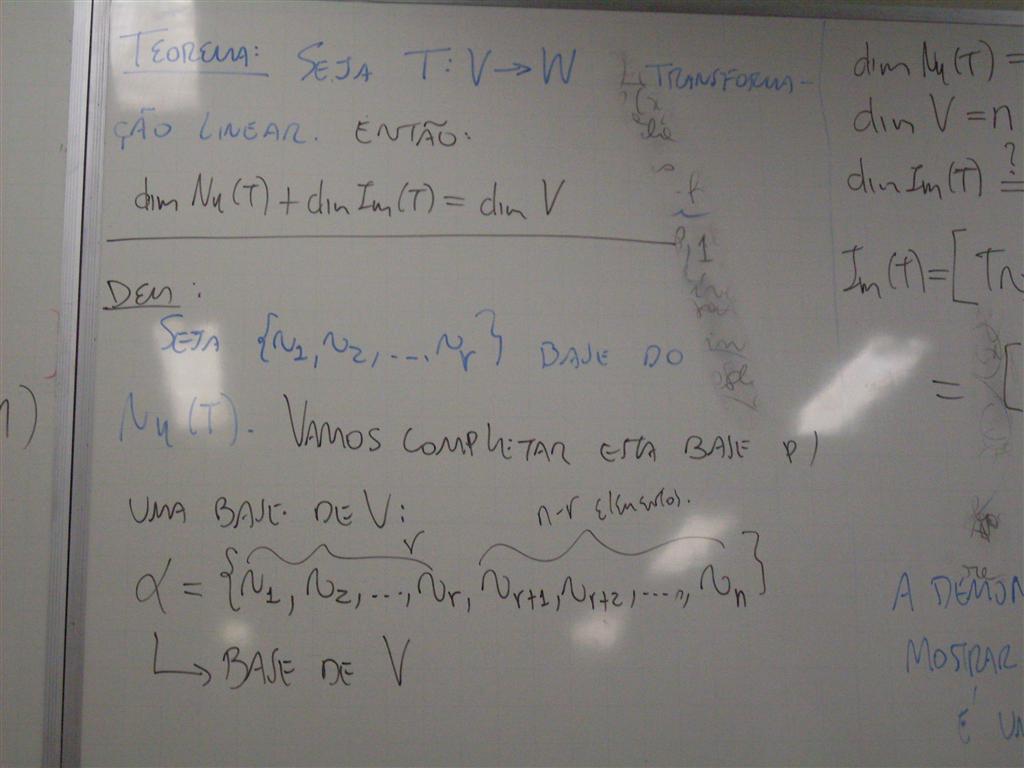 TEOREMA: SEJA T: V → W TRANSFORMA-
ÇÃO LINEAR. ENTÃO:
dim Nu(T) + dim Im(T) = dim V
DEM:
SEJA {v1, v2, ..., vr} BASE DO
Nu(T). VAMOS COMPLETAR ESTA BASE P/
UMA BASE DE V:
r n-r elementos.
α = {v1, v2, ..., vr, vr+1, vr+2, ..., vn}
↳ BASE DE V
dim Nu(T) =
dim V = n
dim Im(T) ?=
Im(T) = [Tv
= [
A DEMON
MOSTRAR
É UM